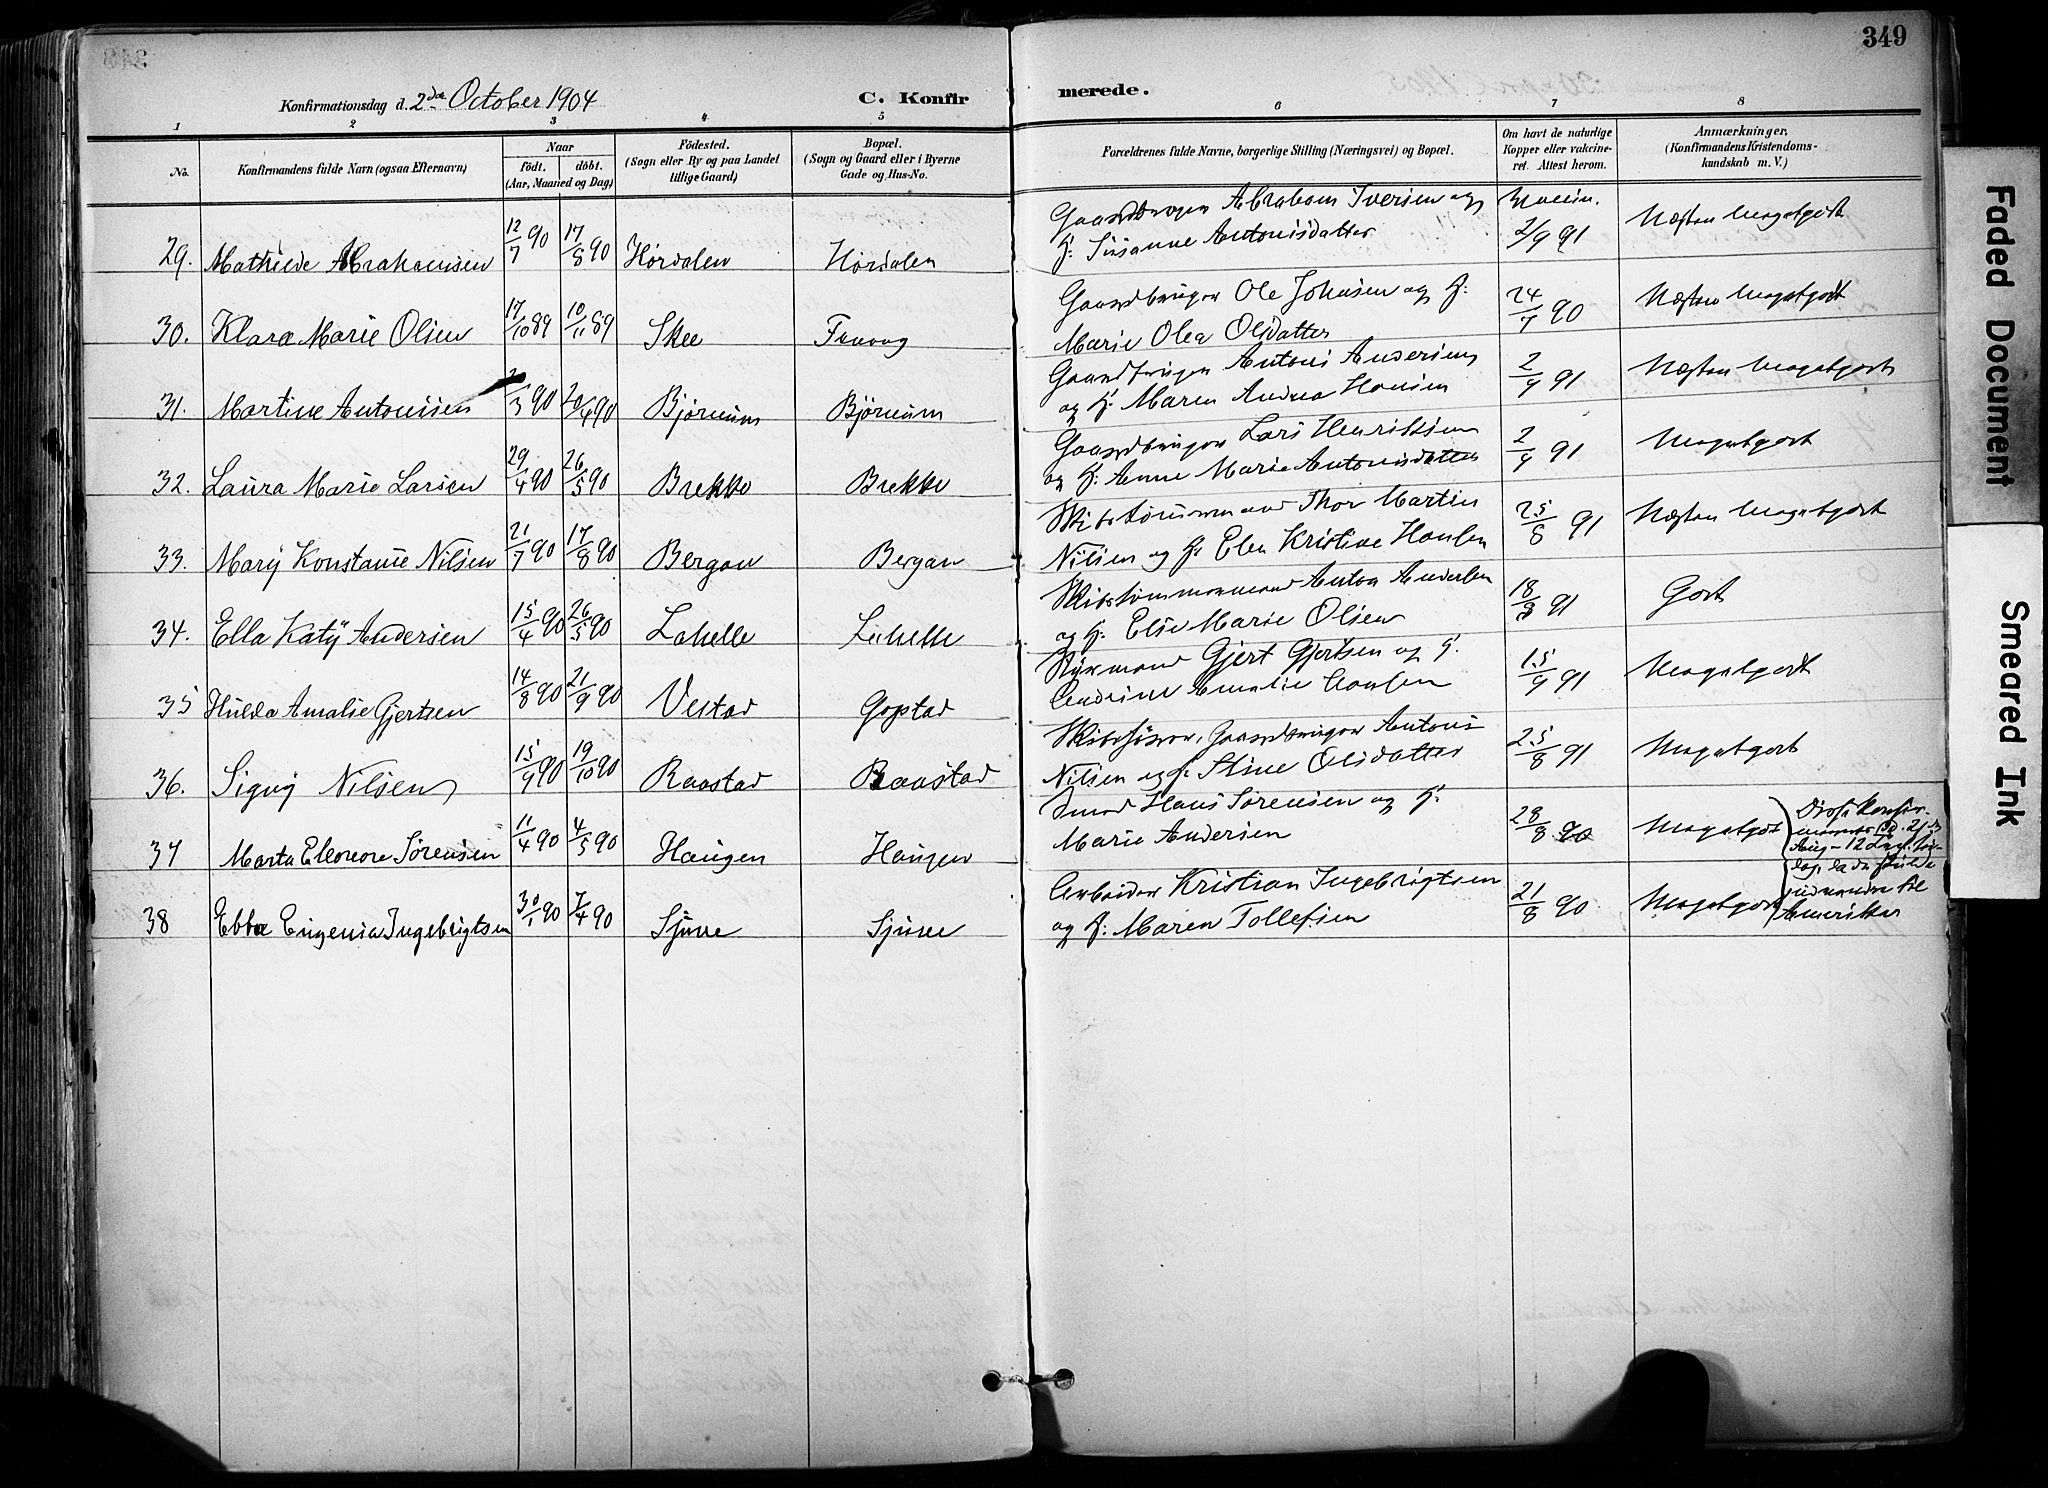 349
Konfirmationsdag d. 2den October 1904
C. Konfir
merede.
1 2 3 4 5 6 7 8
No.
Konfirmandens fulde Navn (ogsaa Efternavn)
Naar
født. døbt.
(Aar, Maaned og Dag)
Födested.
(Sogn eller By og paa Landet
tillige Gaard)
Bopæl.
(Sogn og Gaard eller i Byerne
Gade og Hus-No.
Forældrenes fulde Navne, borgerlige Stilling (Næringsvei) og Bopæl.
Om havt de naturlige
Kopper eller vakcine-
ret. Attest herom.
Anmærkninger.
(Konfirmandens Kristendoms-
kundskab m. V.)
29. Mathilde Abrahamsen 12/7 90 17/8 90 Hørdalen Hørdalen
Gaardbruger Abraham Iversen og
H. Susanne Antonisdatter
Vaccin.
2/9 91
Næsten Megetgodt
30. Klara Marie Olsen 17/10 89 10/11 89 Skee
Gaardbruger Ole Johnsen og H.
Marie Olea Olsdatter
24/7 90
Næsten Megetgodt
31. Martine Antonisen /3 90 20/4 90 Bjørnum Bjørnum
Gaardbruger Antoni Andersen
og H. Maren Andrea Hansen
2/9 91
Næsten Megetgodt
32. Laura Marie Larsen 29/4 90 26/5 90 Brekke Brekke
Gaardbruger Lars Henriksen
og H. Anne Marie Antonisdatter
2/9 91
Megetgodt
33. Mary Konstanse Nilsen 21/7 90 17/8 90 Bergan Bergan
Skibstømmermand Thor Martin
Nilsen og H. Elen Kristine Hansen
25/8 91
Næsten Megetgodt
34. Ella Katy Andersen 15/4 90 26/5 90 Lahelle Lahelle
Skibstømmermand Anton Andersen
og H. Elise Marie Olsen
18/8 91
Godt
35 Hulda Amalie Gjertsen 14/8 90 21/9 90 Vestad Gopstad
Styrmand Gjert Gjertsen og H.
Andrine Amalie Carlsen
15/9 91
Megetgodt
36. Signy Nilsen 15/9 90 19/10 90 Raastad Raastad
Skibsfører, Gaardbruger Antoni
Nilsen og H. Stine Olsdatter
25/8 91
Megetgodt
37 Marta Eleonore Sørensen 11/4 90 4/5 90 Haugen Haugen
Smed Hans Sørensen og H.
Marie Andersen
28/8 90
Megetgodt
38 Ebba Eugenia Ingebrigtsen 30/1 90 7/4 90 Sjuve Sjuve
Arbeider Kristian Ingebrigtsen
og H. Maren Tollefsen
21/8 90
Megetgodt
Disse konfir-
meredes d. 21de
Aug – 12
da de skulde
til
Amerika
Faded Document
Smeared Ink